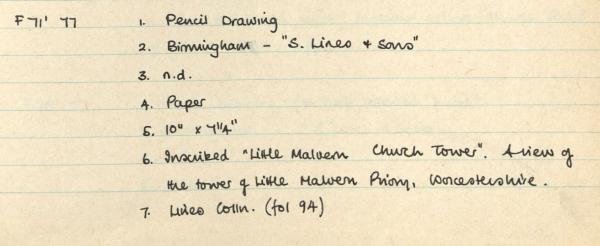 F 71' 77 1. Pencil Drawing
2. Birmingham - "S. Lines & Sons"
3. n.d.
4. Paper
5. 10" x 7 1/4"
6. Inscribed "Little Malvern Church Tower". A view of
the tower of Little Malvern Priory, Worcestershire.
7. Lines Colln. (fol 94)